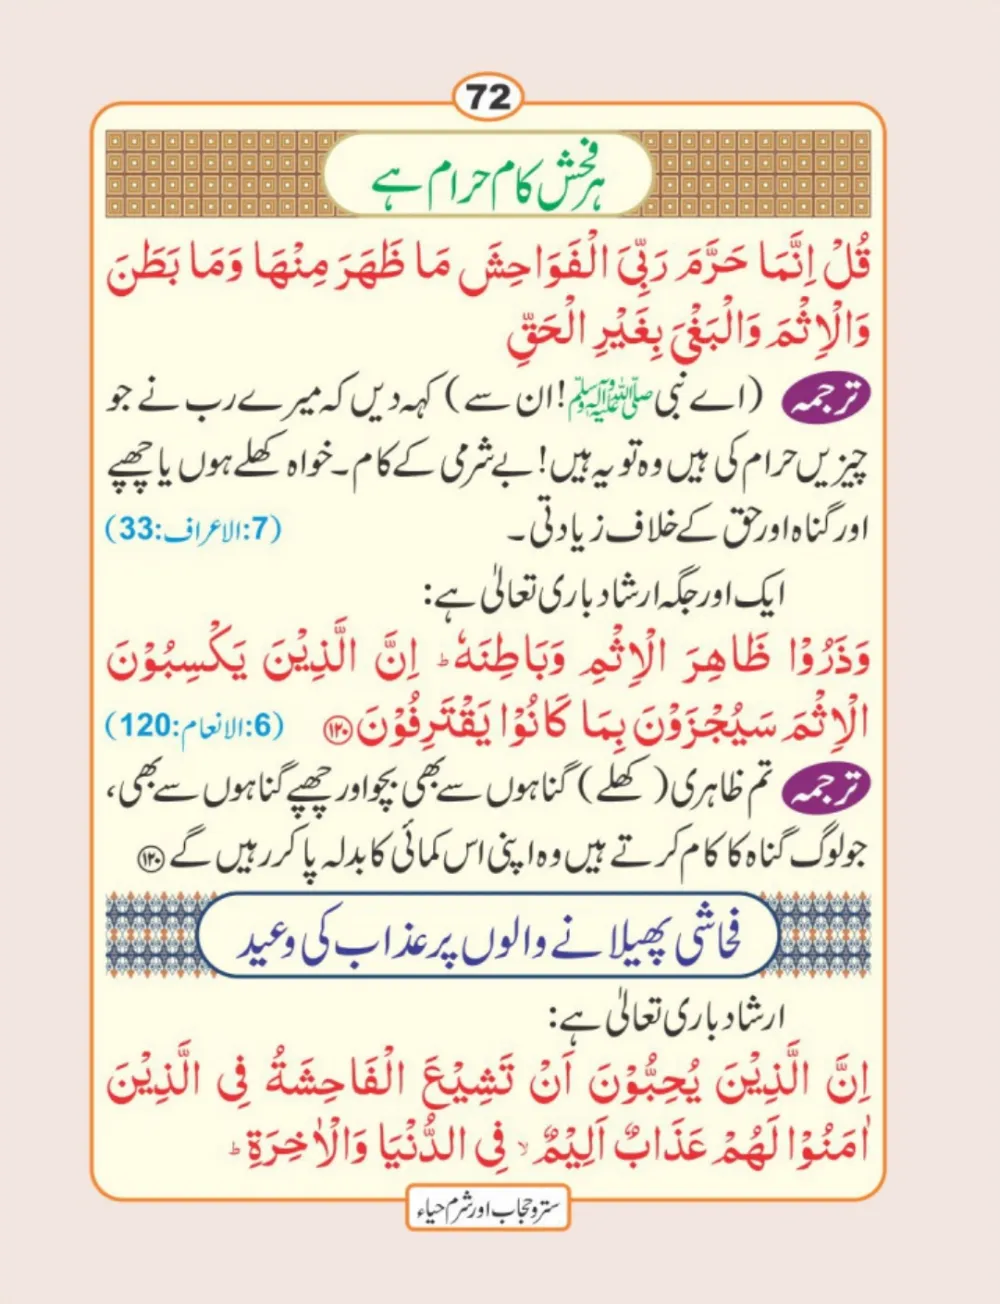 72
ہر فحش کام حرام ہے
قُلْ اِنَّمَا حَرَّمَ رَبِّیَ الْفَوَاحِشَ مَا ظَهَرَ مِنْهَا وَمَا بَطَنَ
وَالْاِثْمَ وَالْبَغْیَ بِغَیْرِ الْحَقِّ
ترجمہ (اے نبی ﷺ! ان سے) کہہ دیں کہ میرے رب نے جو
چیزیں حرام کی ہیں وہ تو یہ ہیں! بے شرمی کے کام۔ خواہ کھلے ہوں یا چھپے
اور گناہ اور حق کے خلاف زیادتی۔ (7:الاعراف:33)
ایک اور جگہ ارشاد باری تعالیٰ ہے:
وَذَرُوْا ظَاهِرَ الْاِثْمِ وَبَاطِنَهٗ ؕ اِنَّ الَّذِیْنَ یَكْسِبُوْنَ
الْاِثْمَ سَیُجْزَوْنَ بِمَا كَانُوْا یَقْتَرِفُوْنَ ۱۲۰ (6:الانعام:120)
ترجمہ تم ظاہری (کھلے) گناہوں سے بھی بچو اور چھپے گناہوں سے بھی،
جو لوگ گناہ کا کام کرتے ہیں وہ اپنی اس کمائی کا بدلہ پا کر رہیں گے ۱۲۰
فحاشی پھیلانے والوں پر عذاب کی وعید
ارشاد باری تعالیٰ ہے:
اِنَّ الَّذِیْنَ یُحِبُّوْنَ اَنْ تَشِیْعَ الْفَاحِشَةُ فِی الَّذِیْنَ
اٰمَنُوْا لَهُمْ عَذَابٌ اَلِیْمٌ ۙ فِی الدُّنْیَا وَالْاٰخِرَةِ ؕ
ستر و حجاب اور شرم حیاء